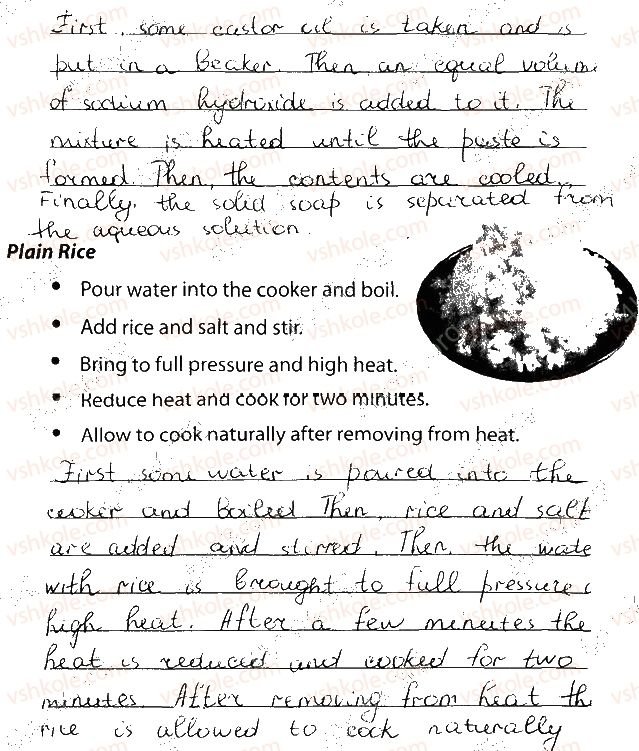 First, some castor oil is taken and is
put in a Beaker. Then an equal volume
of sodium hydroxide is added to it. The
mixture is heated until the paste is
formed. Then, the contents are cooled.
Finally, the solid soap is separated from
the aqueous solution.
Plain Rice
• Pour water into the cooker and boil.
• Add rice and salt and stir.
• Bring to full pressure and high heat.
• Reduce heat and cook for two minutes.
• Allow to cook naturally after removing from heat.
First, some water is poured into the
cooker and boiled. Then, rice and salt
are added and stirred. Then, the wate
with rice is brought to full pressure
high heat. After a few minutes the
heat is reduced and cooked for two
minutes. After removing from heat th
rice is allowed to cook naturally